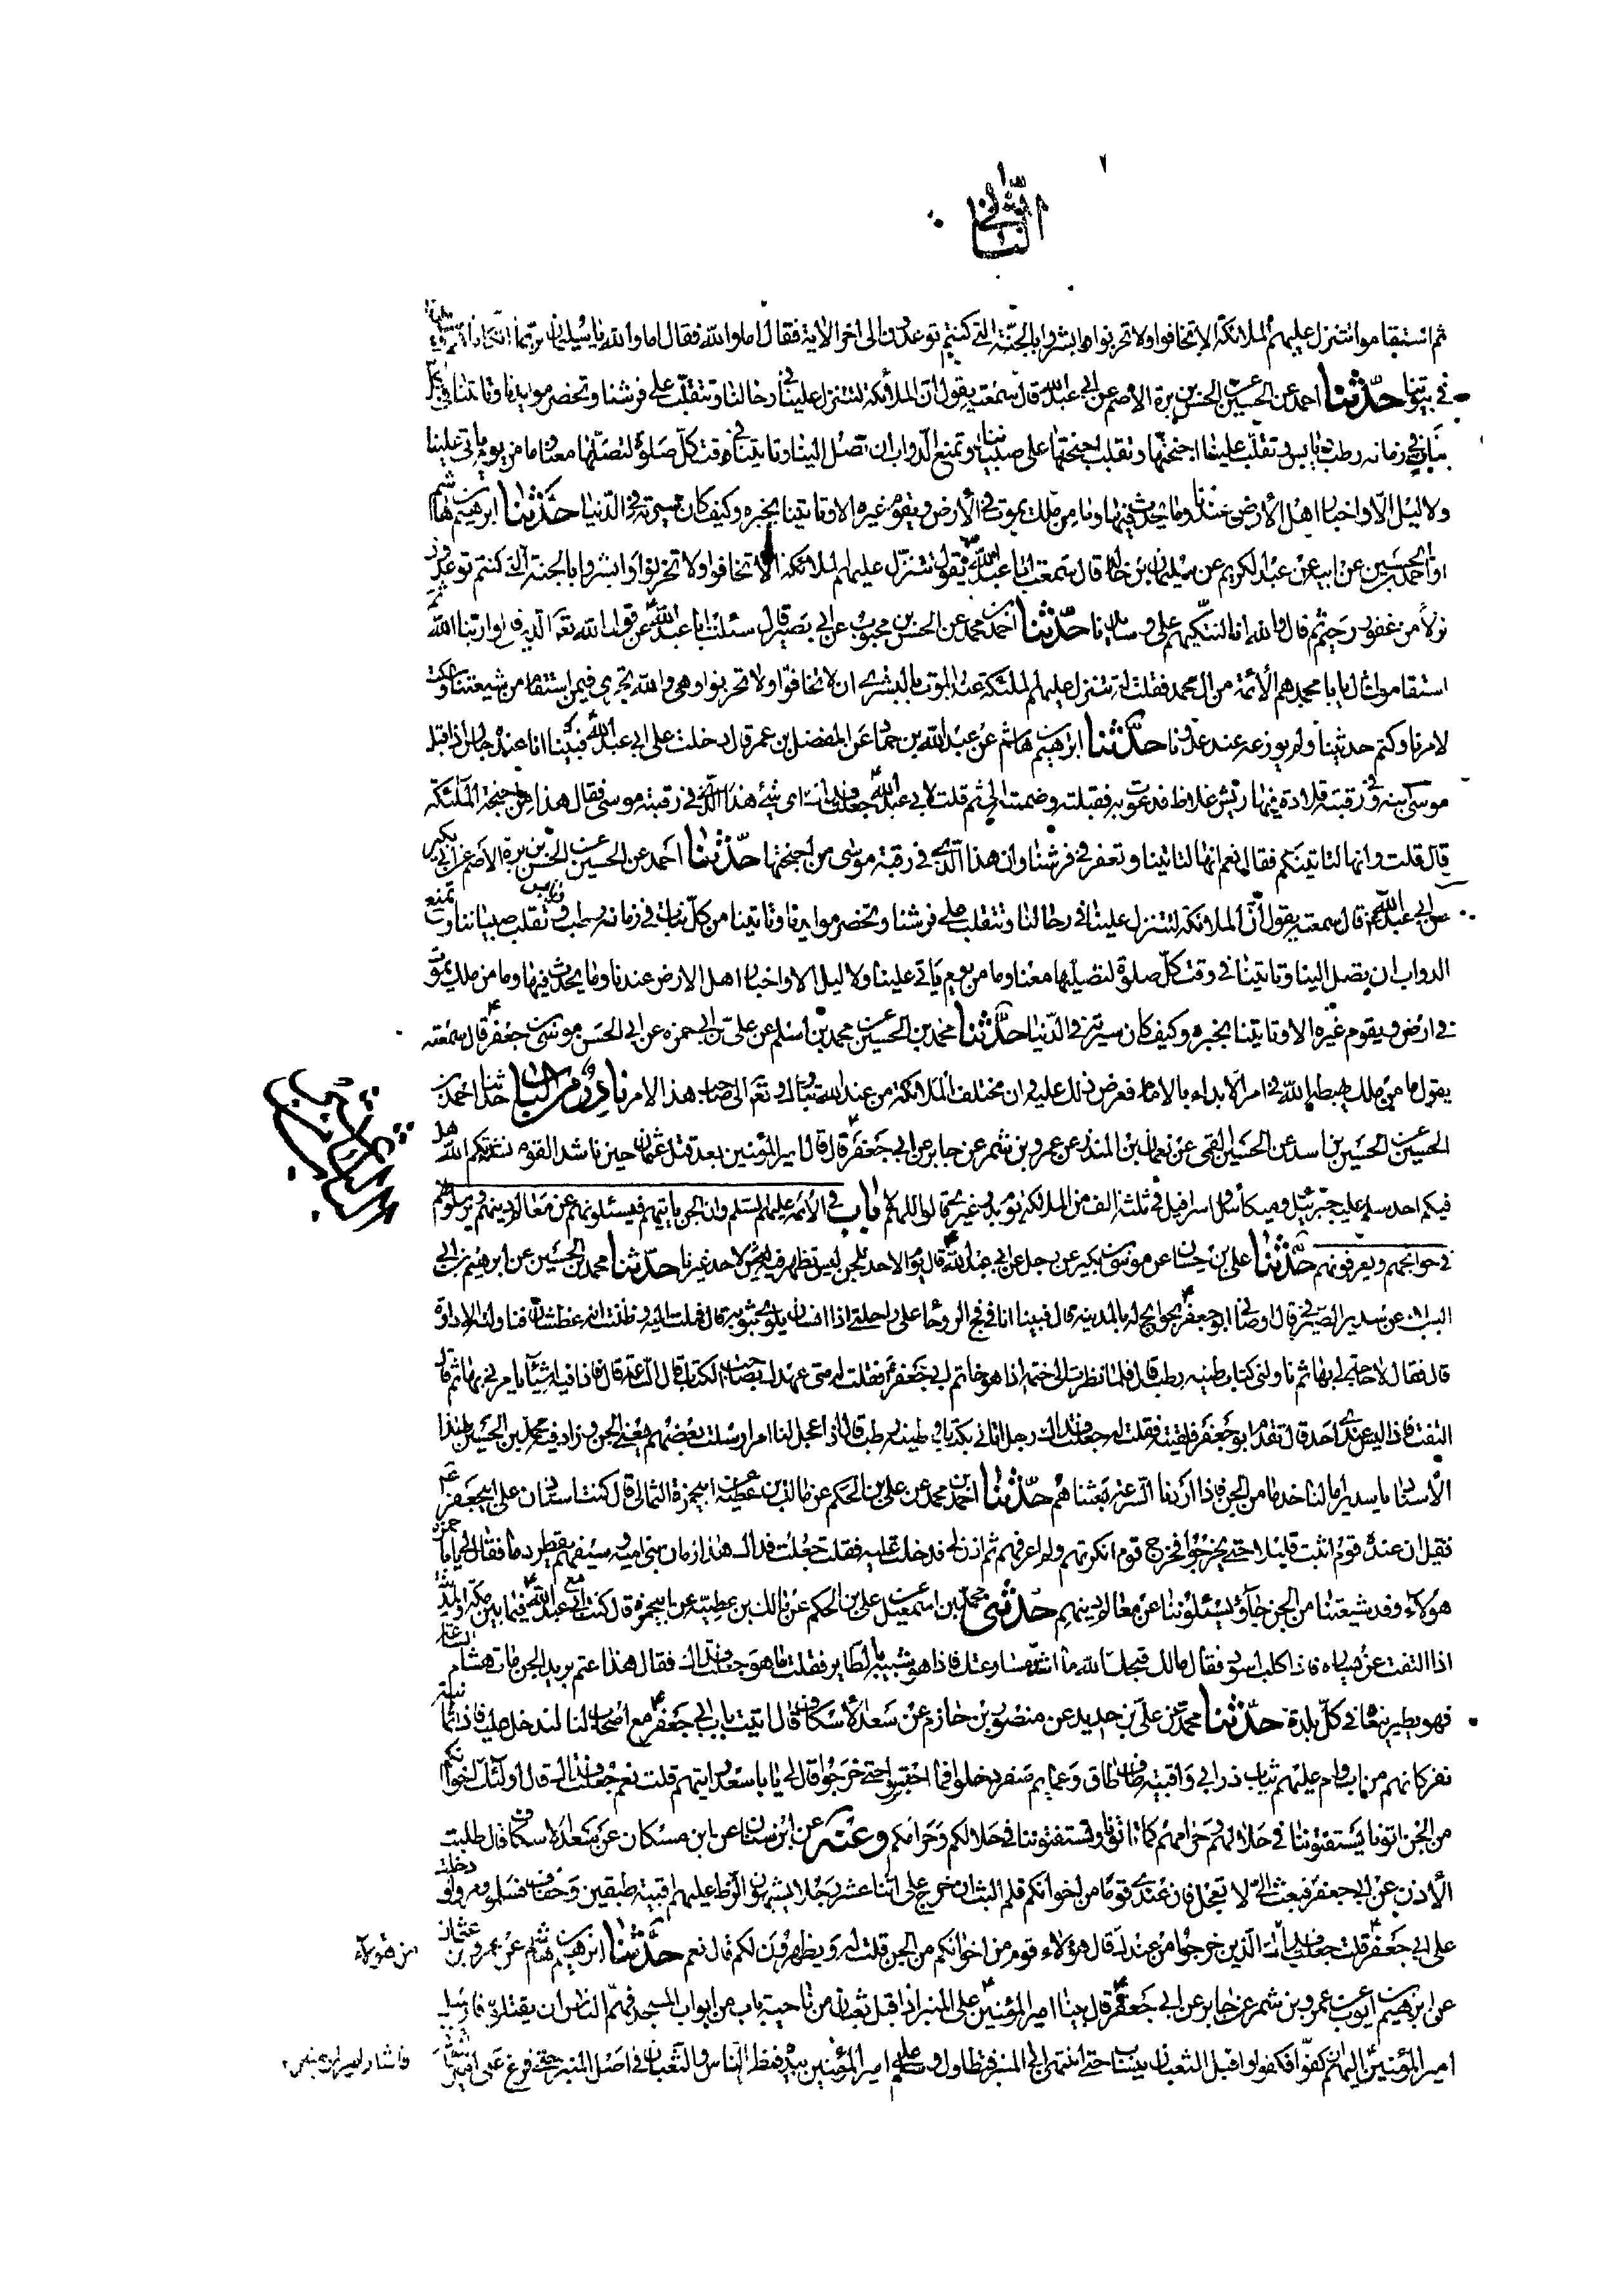 الثانى
ثم استقاموا تتنزل عليهم الملائكة الا تخافوا ولا تحزنوا وابشروا بالجنة التي كنتم توعدون الى اخر الاية فقال اما والله فقال اما والله يا سليمان ربما
في بيوتنا حدثنا احمد عن الحسين عن الحسن بن برة الاصم عن ابي عبد الله قال سمعته يقول ان الملائكة لتنزل علينا في رحالنا وتتقلب على فرشنا وتحضر موايدنا وتاتينا من كل
نبات في زمانه رطب ويابس وتقلب علينا اجنحتها وتقلب اجنحتها على صبياننا وتمنع الدواب ان تصل الينا وتاتينا في وقت كل صلوة لتصليها معنا وما من يوم ياتي علينا
ولا ليل الا واخبار اهل الأرض عندنا وما يحدث فيها وما من ملك يموت في الأرض ويقوم غيره الا وتاتينا بخبره وكيف كان سيرته في الدنيا حدثنا ابرهيم بن هاشم
او احمد بن حسين عن ابيه عن عبد الكريم عن سليمان بن خالد قال سمعت ابا عبد الله يقول تتنزل عليهم الملائكة الا تخافوا ولا تحزنوا وابشروا بالجنة التي كنتم توعدون
نزلا من غفور رحيم ثم قال والله انا لنتكيهم على وسايدنا حدثنا احمد بن محمد عن الحسن بن محبوب عن ابي بصير قال سئلت ابا عبد الله عن قول الله تعالى الذين قالوا ربنا الله ثم
استقاموا قال يابا محمد هم الأئمة من ال محمد فقلت له تتنزل عليهم الملئكة عند الموت بالبشرى ان لا تخافوا ولا تحزنوا وهي والله تجري فيمن استقام من شيعتنا وسكت
لامرنا وكتم حديثنا ولم يوذعه عند عدونا حدثنا ابرهيم بن هاشم عن عبد الله بن حماد عن المفضل بن عمر قال دخلت على ابي عبد الله فبينا انا عنده جالس اذ اقبل
موسى ابنه وفي رقبته قلادة فيها ريش غلاظ فدعوت به فقبلته وضممته الي ثم قلت لابي عبد الله جعلت فداك اى شئ هذا الذي في رقبة موسى فقال هذا من اجنحة الملئكة
قال قلت وانها لتاتينكم فقال نعم انها لتاتينا وتعفر في فرشنا وان هذا الذي في رقبة موسى من اجنحتها حدثنا احمد عن الحسين عن الحسن بن برة الاصم عن ابي بكير
عن ابي عبد الله قال سمعته يقول ان الملائكة لتنزل علينا في رحالنا وتتقلب على فرشنا وتحضر موايدنا وتاتينا من كل نبات في زمانه رطب ويابس وتقلب صبياننا وتمنع
الدواب ان يصل الينا وتاتينا في وقت كل صلوة لتصليها معنا وما من يوم ياتي علينا ولا ليل الا واخبار اهل الارض عندنا وما يحدث فيها وما من ملك يموت
في ارض ويقوم غيره الا وتاتينا بخبره وكيف كان سيرته في الدنيا حدثنا محمد بن الحسين عن محمد بن اسلم عن علي بن ابي حمزة عن ابي الحسن موسى بن جعفر قال سمعته
يقول ما من ملك يهبطه الله في امر الا بداء بالامام فعرض ذلك عليه وان مختلف الملائكة من عند الله تبارك وتعالى الى صاحب هذا الامر نادر من الباب حدثنا احمد بن
الحسين عن الحسين بن اسد عن الحسين القمي عن نعمان بن المنذر عن عمرو بن شمر عن جابر عن ابي جعفر قال قال امير المؤمنين بعد قتل عثمان حين ناشد القوم نشدتكم الله هل
فيكم احد سلم عليه جبرئيل وميكائيل واسرافيل في ثلثة الف من الملائكة يوم بدر غيري قالوا اللهم لا باب في الأئمة عليهم السلم وان الجن ياتيهم فيسئلونهم عن معالم دينهم ويرسلونهم
في حوائجهم ويعرفونهم حدثنا علي بن حسان عن موسى بن بكير عن رجل عن ابي عبد الله قال يوم الاحد للجن ليس تظهر فيه الجن لاحد غيرنا حدثنا محمد بن الحسين عن ابرهيم بن ابي
البلاد عن سدير الصيرفي قال اوصاني ابو جعفر بحوائج له بالمدينة قال فبينا انا في فج الروحا على راحلتي اذا انسان يلوي بثوبه قال فملت اليه وظننت انه عطشان فناولته الاداوة
قال فقال لا حاجة لي بها ثم ناولني كتابا طينه رطب قال فلما نظرت الى ختمه اذا هو خاتم ابي جعفر فقلت له متى عهدك بصاحب الكتاب قال الساعة قال فاذا فيه شيئا يامرني بها ثم قال
التفت فاذا ليس عندي احد قال فقدم ابو جعفر فلقيته فقلت له جعلت فداك رجل اتاني بكتاب وطينه رطب قال اذا عجل لنا امر ارسلت بعضهم يعني الجن وزاد فيه محمد بن الحسين بهذا
الأسناد يا سدير ان لنا خدما من الجن فاذا اردنا السرعة بعثناهم حدثنا احمد بن محمد عن علي بن الحكم عن مالك بن عطية عن ابي حمزة الثمالي قال كنت استاذن على ابي جعفر
فقيل ان عنده قوم اثبت قليلا حتى يخرجوا فخرج قوم انكرتهم ولم اعرفهم ثم اذن لي فدخلت عليه فقلت جعلت فداك هذا زمان بني امية وسيفهم يقطر دما فقال لي يابا حمزة
هؤلاء وفد شيعتنا من الجن جاؤا يسئلوننا عن معالم دينهم حدثني محمد بن اسمعيل عن علي بن الحكم عن مالك بن عطية عن ابي حمزة قال كنت مع ابي عبد الله فيما بين مكة والمدينة
اذا التفت عن يساره فاذا كلب اسود فقال مالك قبحك الله ما اشد مسارعتك فاذا هو شبيه بالطاير فقلت ما هو جعلت فداك فقال هذا عثم بريد الجن مات هشام الساعة
فهو يطير ينعاه في كل بلدة حدثنا محمد عن علي بن حديد عن منصور بن حازم عن سعد الأسكاف قال اتيت باب ابي جعفر مع اصحاب لنا لندخل عليه فاذا ثمانية
نفر كانهم من اب وام عليهم ثياب ذرابي واقبية طاق طاق وعمايم صفر دخلوا فما احتبسوا حتى خرجوا قال لي يابا سعد رايتهم قلت نعم جعلت فداك قال اولئك اخوانكم
من الجن اتونا يستفتوننا في حلالهم وحرامهم كما تاتونا وتستفتوننا في حلالكم وحرامكم وعنه عن ابن سنان عن ابن مسكان عن سعد الاسكاف قال طلبت
الأذن عن ابي جعفر فبعث الي لا تعجل فان عندي قوما من اخوانكم فلم البث ان خرج علي اثنا عشر رجلا يشبهون الزط عليهم اقبية طبقين وخفاف فسلموا ومروا ودخلت
على ابي جعفر قلت جعلت فداك الذين خرجوا من عندك قال هؤلاء قوم من اخوانكم من الجن قلت له ويظهرون لكم قال نعم حدثنا ابرهيم بن هاشم عن عمرو بن عثمان
من هؤلاء
عن ابرهيم بن ايوب عن عمرو بن شمر عن جابر عن ابي جعفر قال بينا امير المؤمنين على المنبر اذ اقبل ثعبان من ناحية باب من ابواب المسجد فهم الناس ان يقتلوه فارسل
امير المؤمنين اليهم ان كفوا فكفوا واقبل الثعبان ينساب حتى انتهى الى المنبر فتطاول وسلم على امير المؤمنين فنظر الناس والثعبان في اصل المنبر حتى فرغ على امير